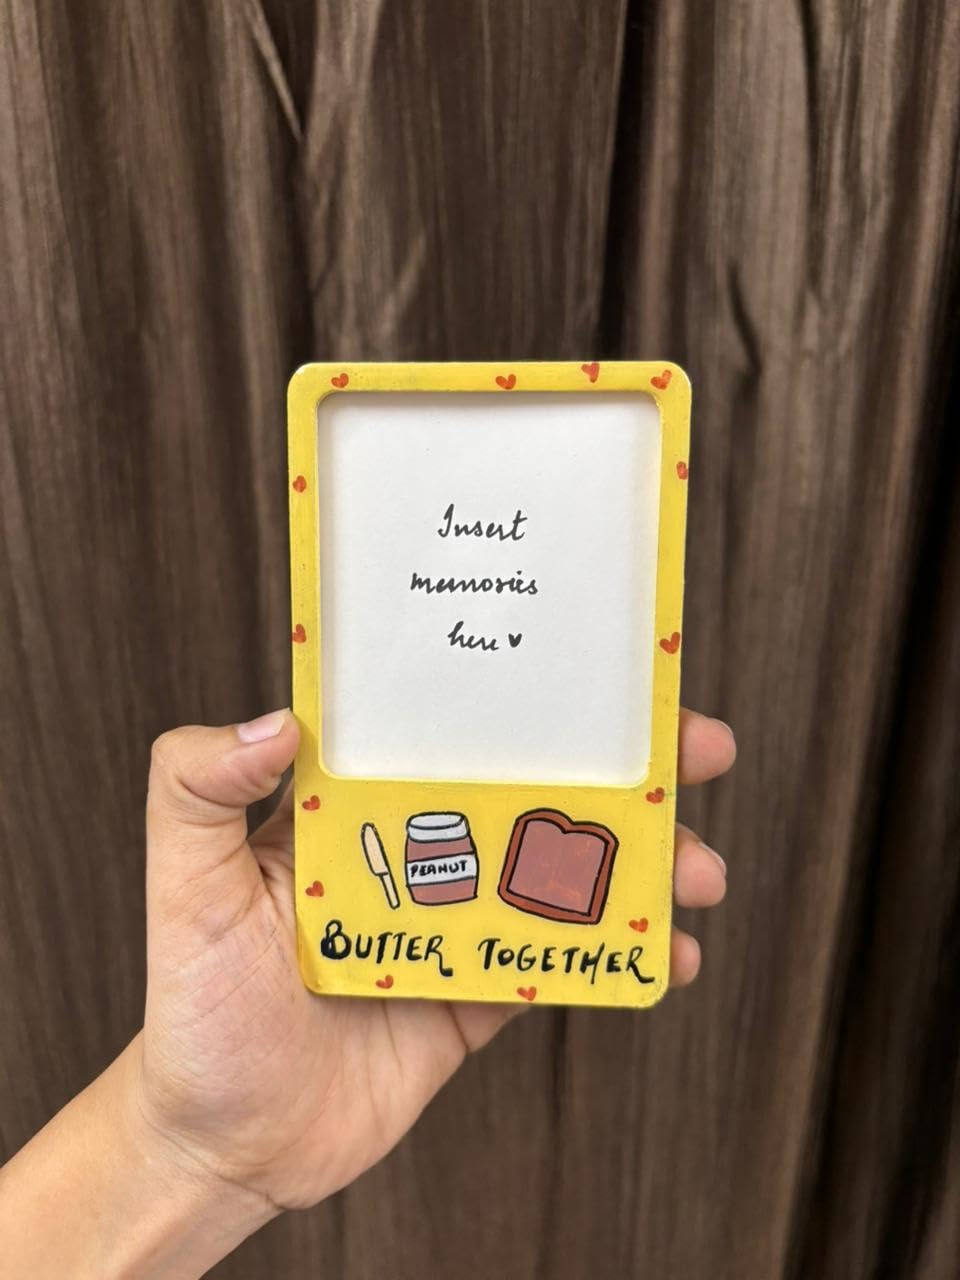 Insert
memories
here ♥
PEANUT
BUTTER TOGETHER